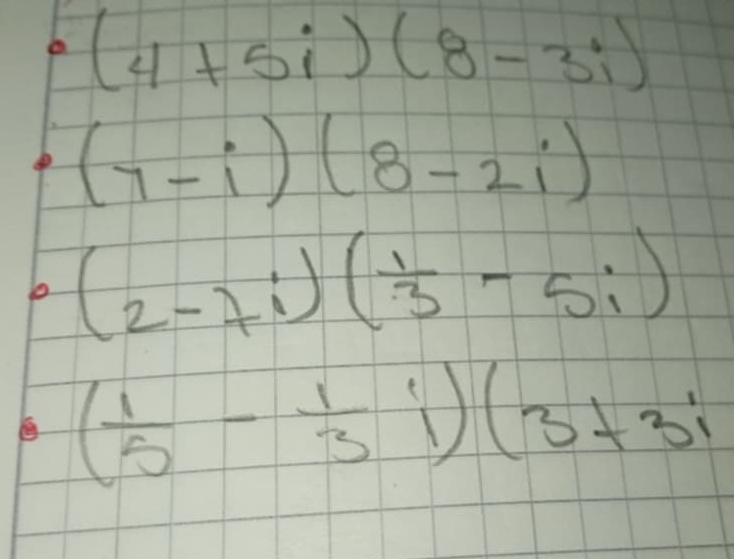 (4 + 5i) (8 - 3i)
(7 - i) (8 - 2i)
(2 - 7i) (1/3 - 5i)
(1/5 - 1/3 i) (3 + 3i